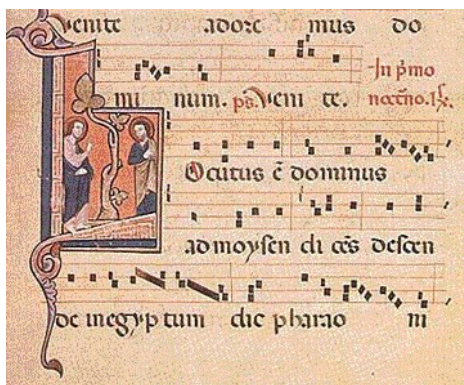 Venite adore mus do
mi num. ps. Veni te. In p̄mo
noct̄no.
Ocutus ē dominus
ad moysen di cēs descen
de in egyp tum dic pharao ni